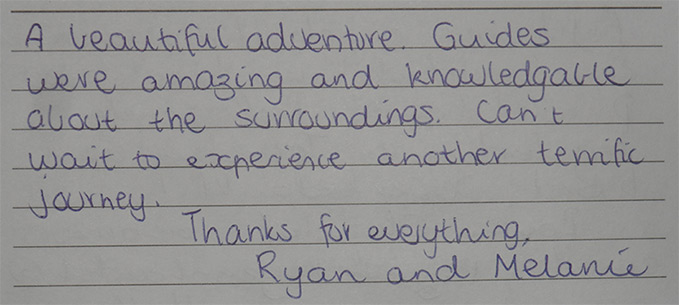 A beautiful adventure. Guides
were amazing and knowledgable
about the surroundings. Can't
wait to experience another terrific
journey.
Thanks for everything,
Ryan and Melanie